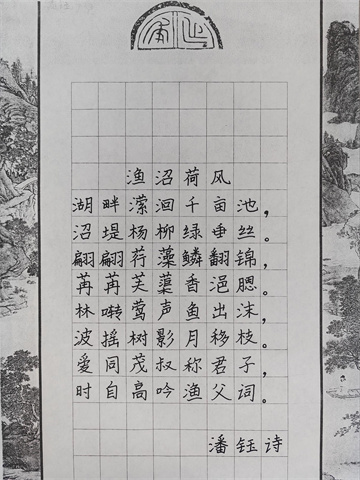 渔沼荷风
湖畔潆洄千亩池，
沼堤杨柳绿垂丝。
翩翩荇藻鳞翻锦，
苒苒芙蕖香浥腮。
林啭莺声鱼出沫，
波摇树影月移枝。
爱同茂叔称君子，
时自高吟渔父词。
潘钰诗